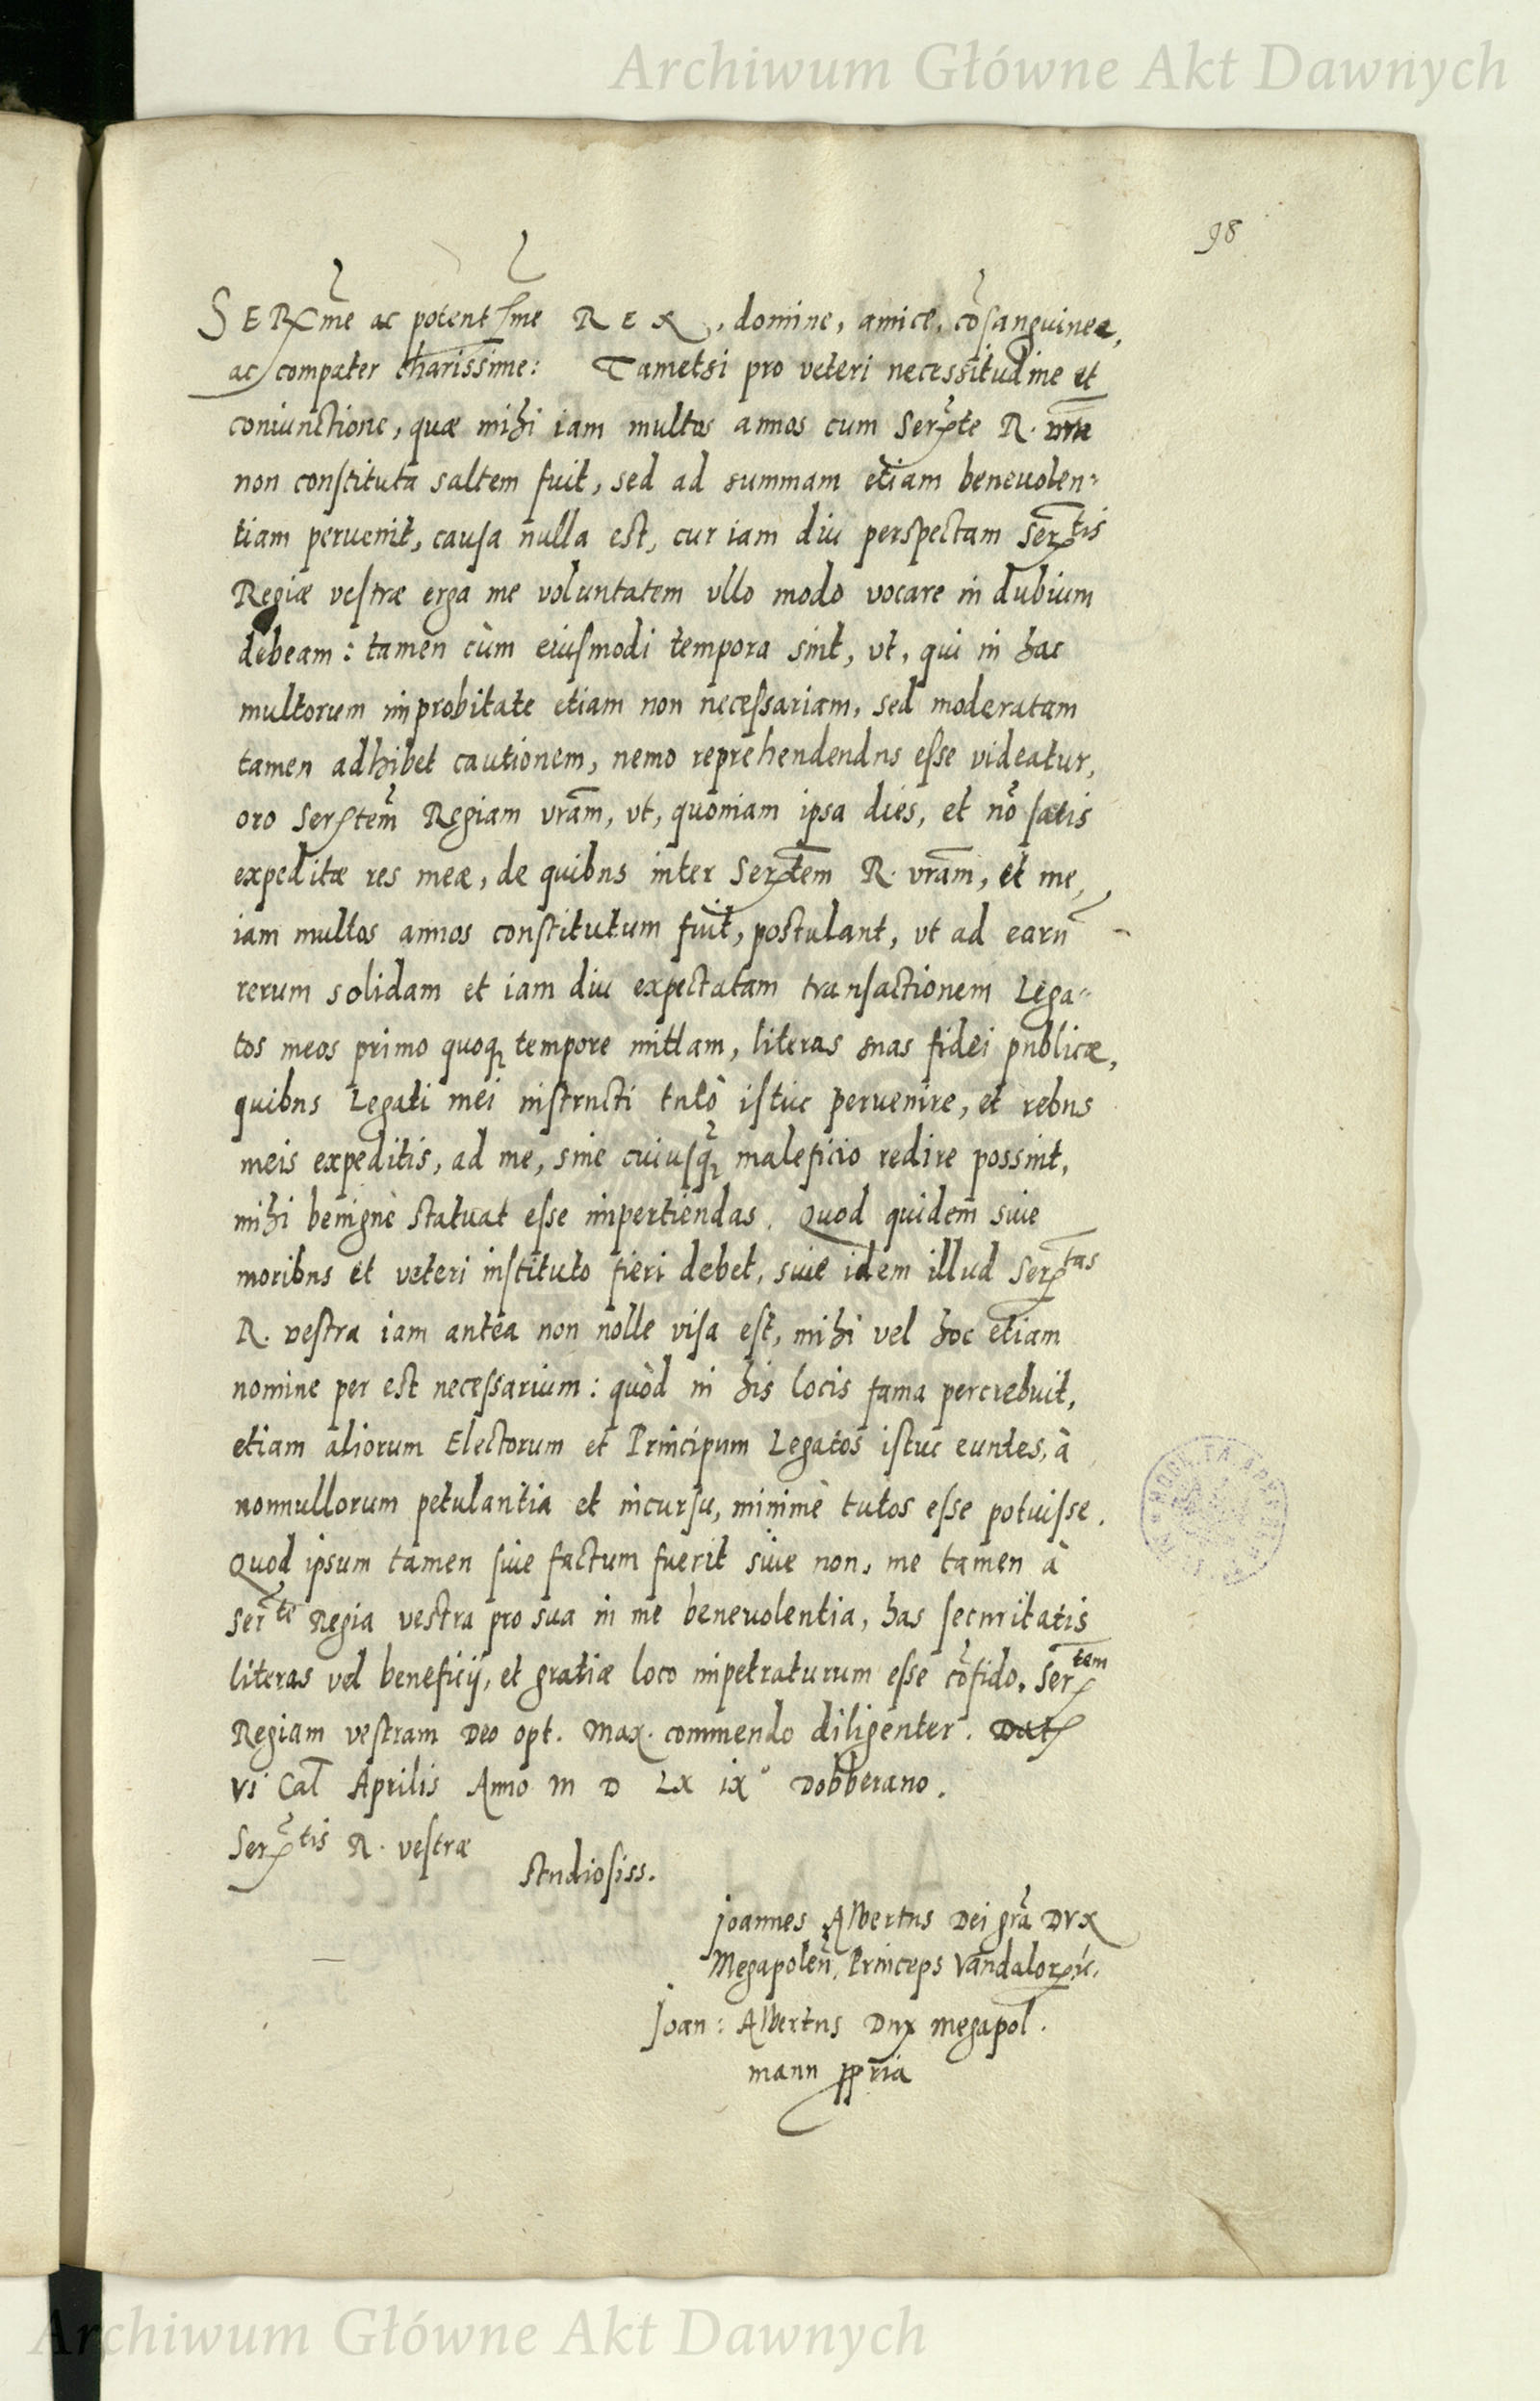 Archiwum Główne Akt Dawnych
98
SERmē ac potentssme REX, domine, amice, cōsanguinee,
ac compater charissime: Tametsi pro veteri necessitudine et
coniunctione, quæ mihi iam multos annos cum Serte R. vrā
non constituta saltem fuit, sed ad summam etiam beneuolen-
tiam peruenit, causa nulla est, cur iam diu perspectam Sertis
Regiæ vestræ erga me voluntatem vllo modo vocare in dubium
debeam: tamen cùm eiusmodi tempora sint, vt, qui in hac
multorum improbitate etiam non necessariam, sed moderatam
tamen adhibet cautionem, nemo reprehendendus esse videatur,
oro Sertem Regiam vrām, vt, quoniam ipsa dies, et nō satis
expeditæ res meæ, de quibus inter Sertem R. vrām, et me,
iam multos annos constitutum fuit, postulant, vt ad earū
rerum solidam et iam diu expectatam transactionem Lega-
tos meos primo quoq; tempore mittam, literas suas fidei publicæ,
quibus Legati mei instructi tutò istuc peruenire, et rebus
meis expeditis, ad me, sine cuiusq; maleficio redire possint,
mihi benignè statuat esse impertiendas. Quod quidem siue
moribus et veteri instituto fieri debet, siue idem illud Sertas
R. vestra iam antea non nolle visa est, mihi vel hoc etiam
nomine per est necessarium: quòd in his locis fama percrebuit,
etiam aliorum Electorum et Principum Legatos istuc euntes, à
nonnullorum petulantia et incursu, minimè tutos esse potuisse.
Quod ipsum tamen siue factum fuerit siue non, me tamen à
Serte Regia vestra pro sua in me beneuolentia, has securitatis
literas vel beneficij, et gratiæ loco impetraturum esse cōfido. Sertem
Regiam vestram Deo opt. Max. commendo diligenter. Dat
VI Cal Aprilis Anno M D LX ix° Dobberano.
Sertis R. vestræ
studiosiss.
Joannes Albertus Dei grā DVX
Megapoleñ, Princeps Vandalor
Joan: Albertus Dux Megapol.
manu ppria
Archiwum Główne Akt Dawnych